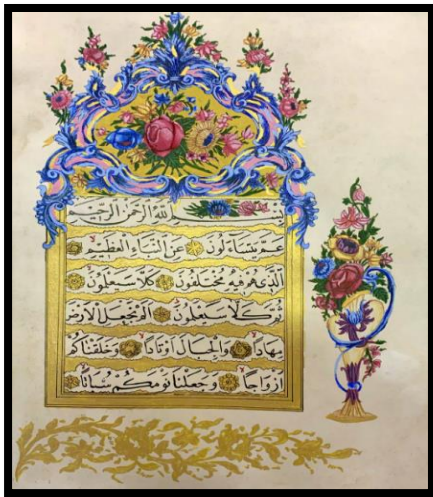 بِسْمِ اللّٰهِ الرَّحْمٰنِ الرَّحِيمِ
عَمَّ يَتَسَاءَلُونَ عَنِ النَّبَاِ الْعَظِيمِ
اَلَّذِى هُمْ فِيهِ مُخْتَلِفُونَ كَلَّا سَيَعْلَمُونَ
ثُمَّ كَلَّا سَيَعْلَمُونَ اَلَمْ نَجْعَلِ الْاَرْضَ
مِهَادًا وَالْجِبَالَ اَوْتَادًا وَخَلَقْنَاكُمْ
اَزْوَاجًا وَجَعَلْنَا نَوْمَكُمْ سُبَاتًا